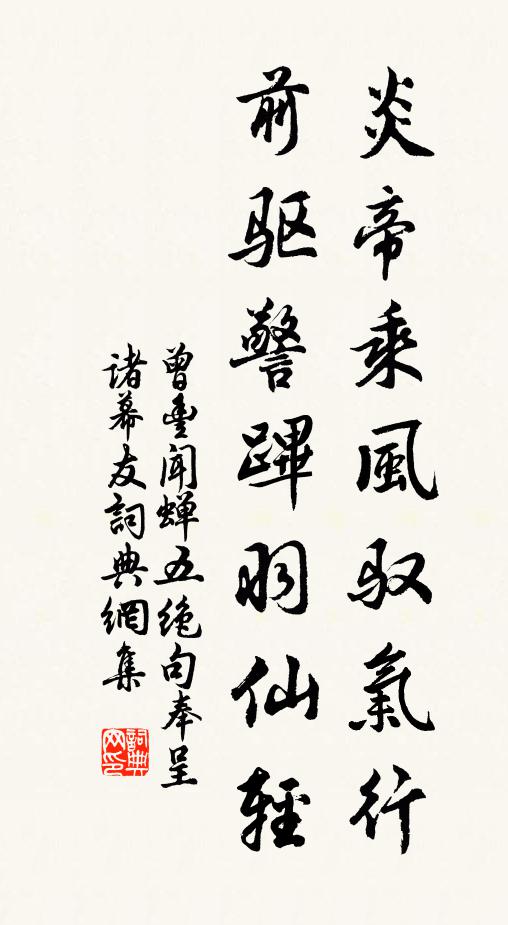 炎帝乘風驭氣行
前驱警蹕羽仙輕
曾豊闻蝉五绝句奉呈
诸幕友詞典網集
詞典
网印